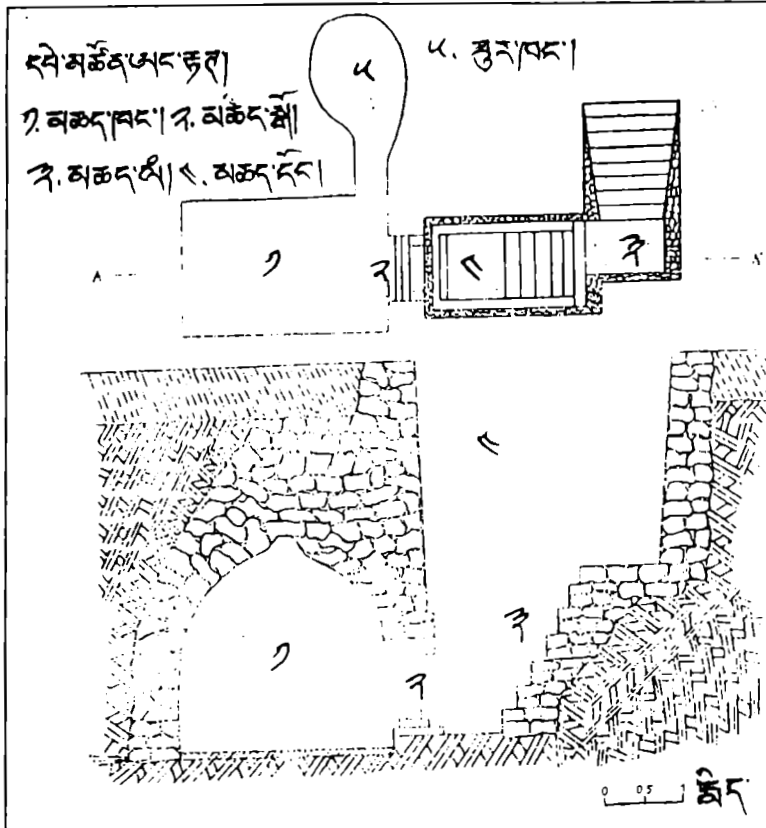 དཔེ་མཚོན་ཨང་རྟཊ།
༡. མཆད་ཁང་། ༢. མཆད་སྒོ།
༣. མཆད་ལཾ། ༤. མཆད་དོང་།
༥. ཟུར་ཁང་།
༥
A ༡ ༢ ༤ ༣
༤
༣
༡ ༢
0 05 1